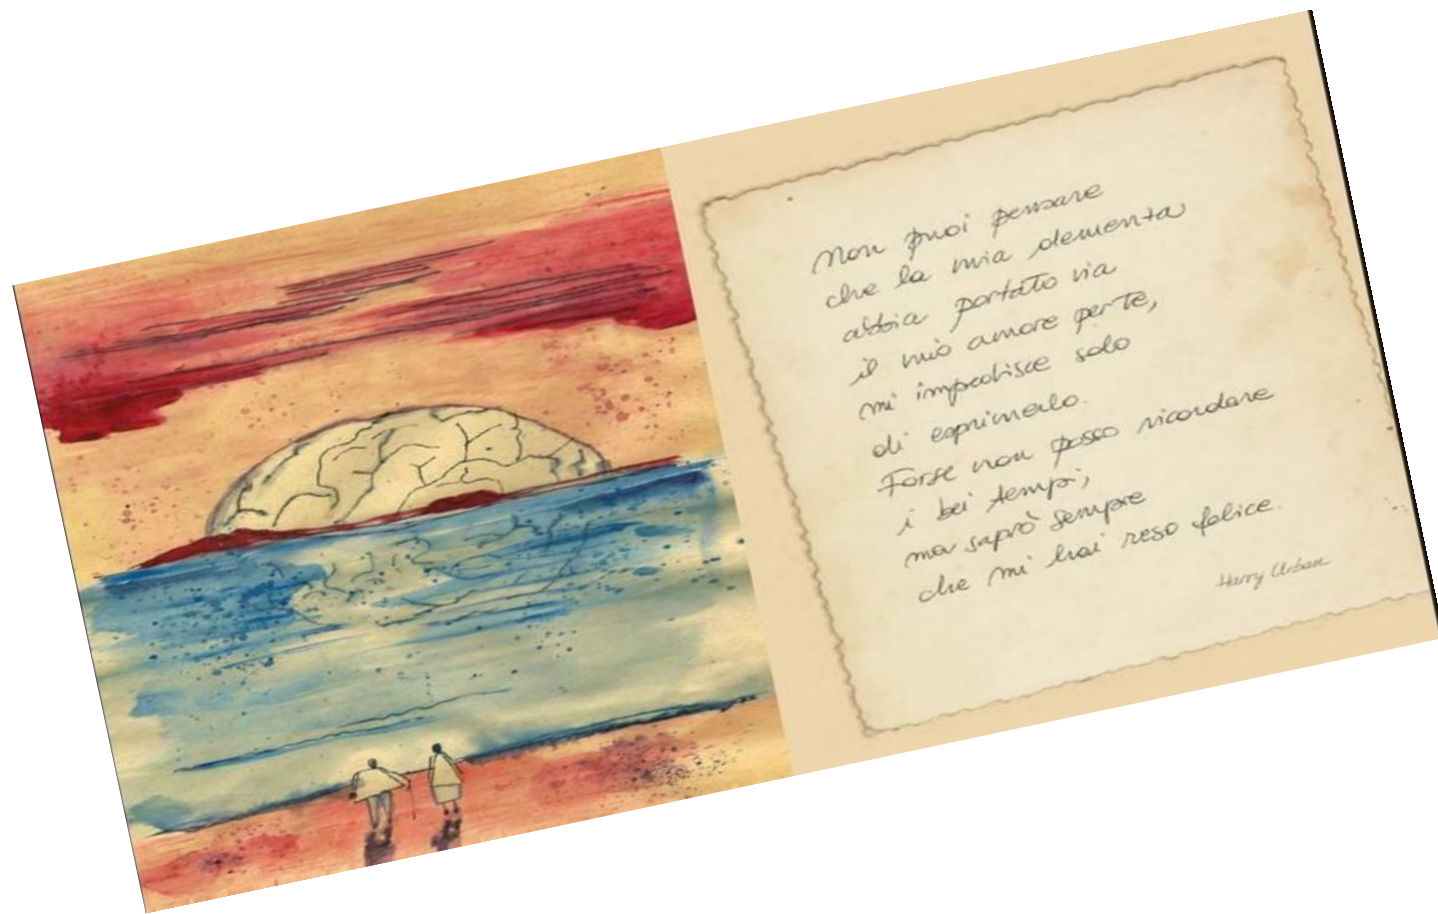 Non puoi pensare
che la mia dementa
abbia portato via
il mio amore per te,
mi impedisce solo
di esprimerlo.
Forse non posso ricordare
i bei tempi,
ma saprò sempre
che mi hai reso felice.
Harry Urban